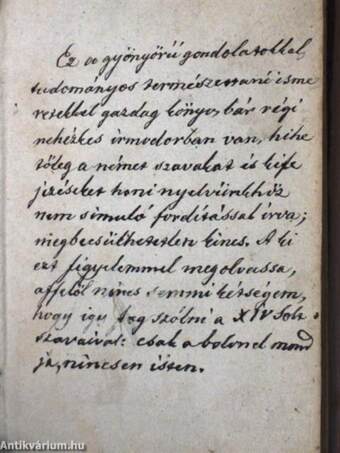 Ez a gyönyörű gondolatokkal,
tudományos természettani isme
retekkel gazdag könyv, bár régi
nehézkes irmodorban van, hihe
tőleg a német szavakat és kife
jezéseket honi nyelvünkhöz
nem simuló fordítással írva;
megbecsülhetetlen kincs. A ki
ezt figyelemmel megolvassa,
affelől nincs semmi kétségem,
hogy igy fog szólni a XIV Solt.
szavaival: csak a bolond mond
ja, nincsen isten.
Antikvárium.hu